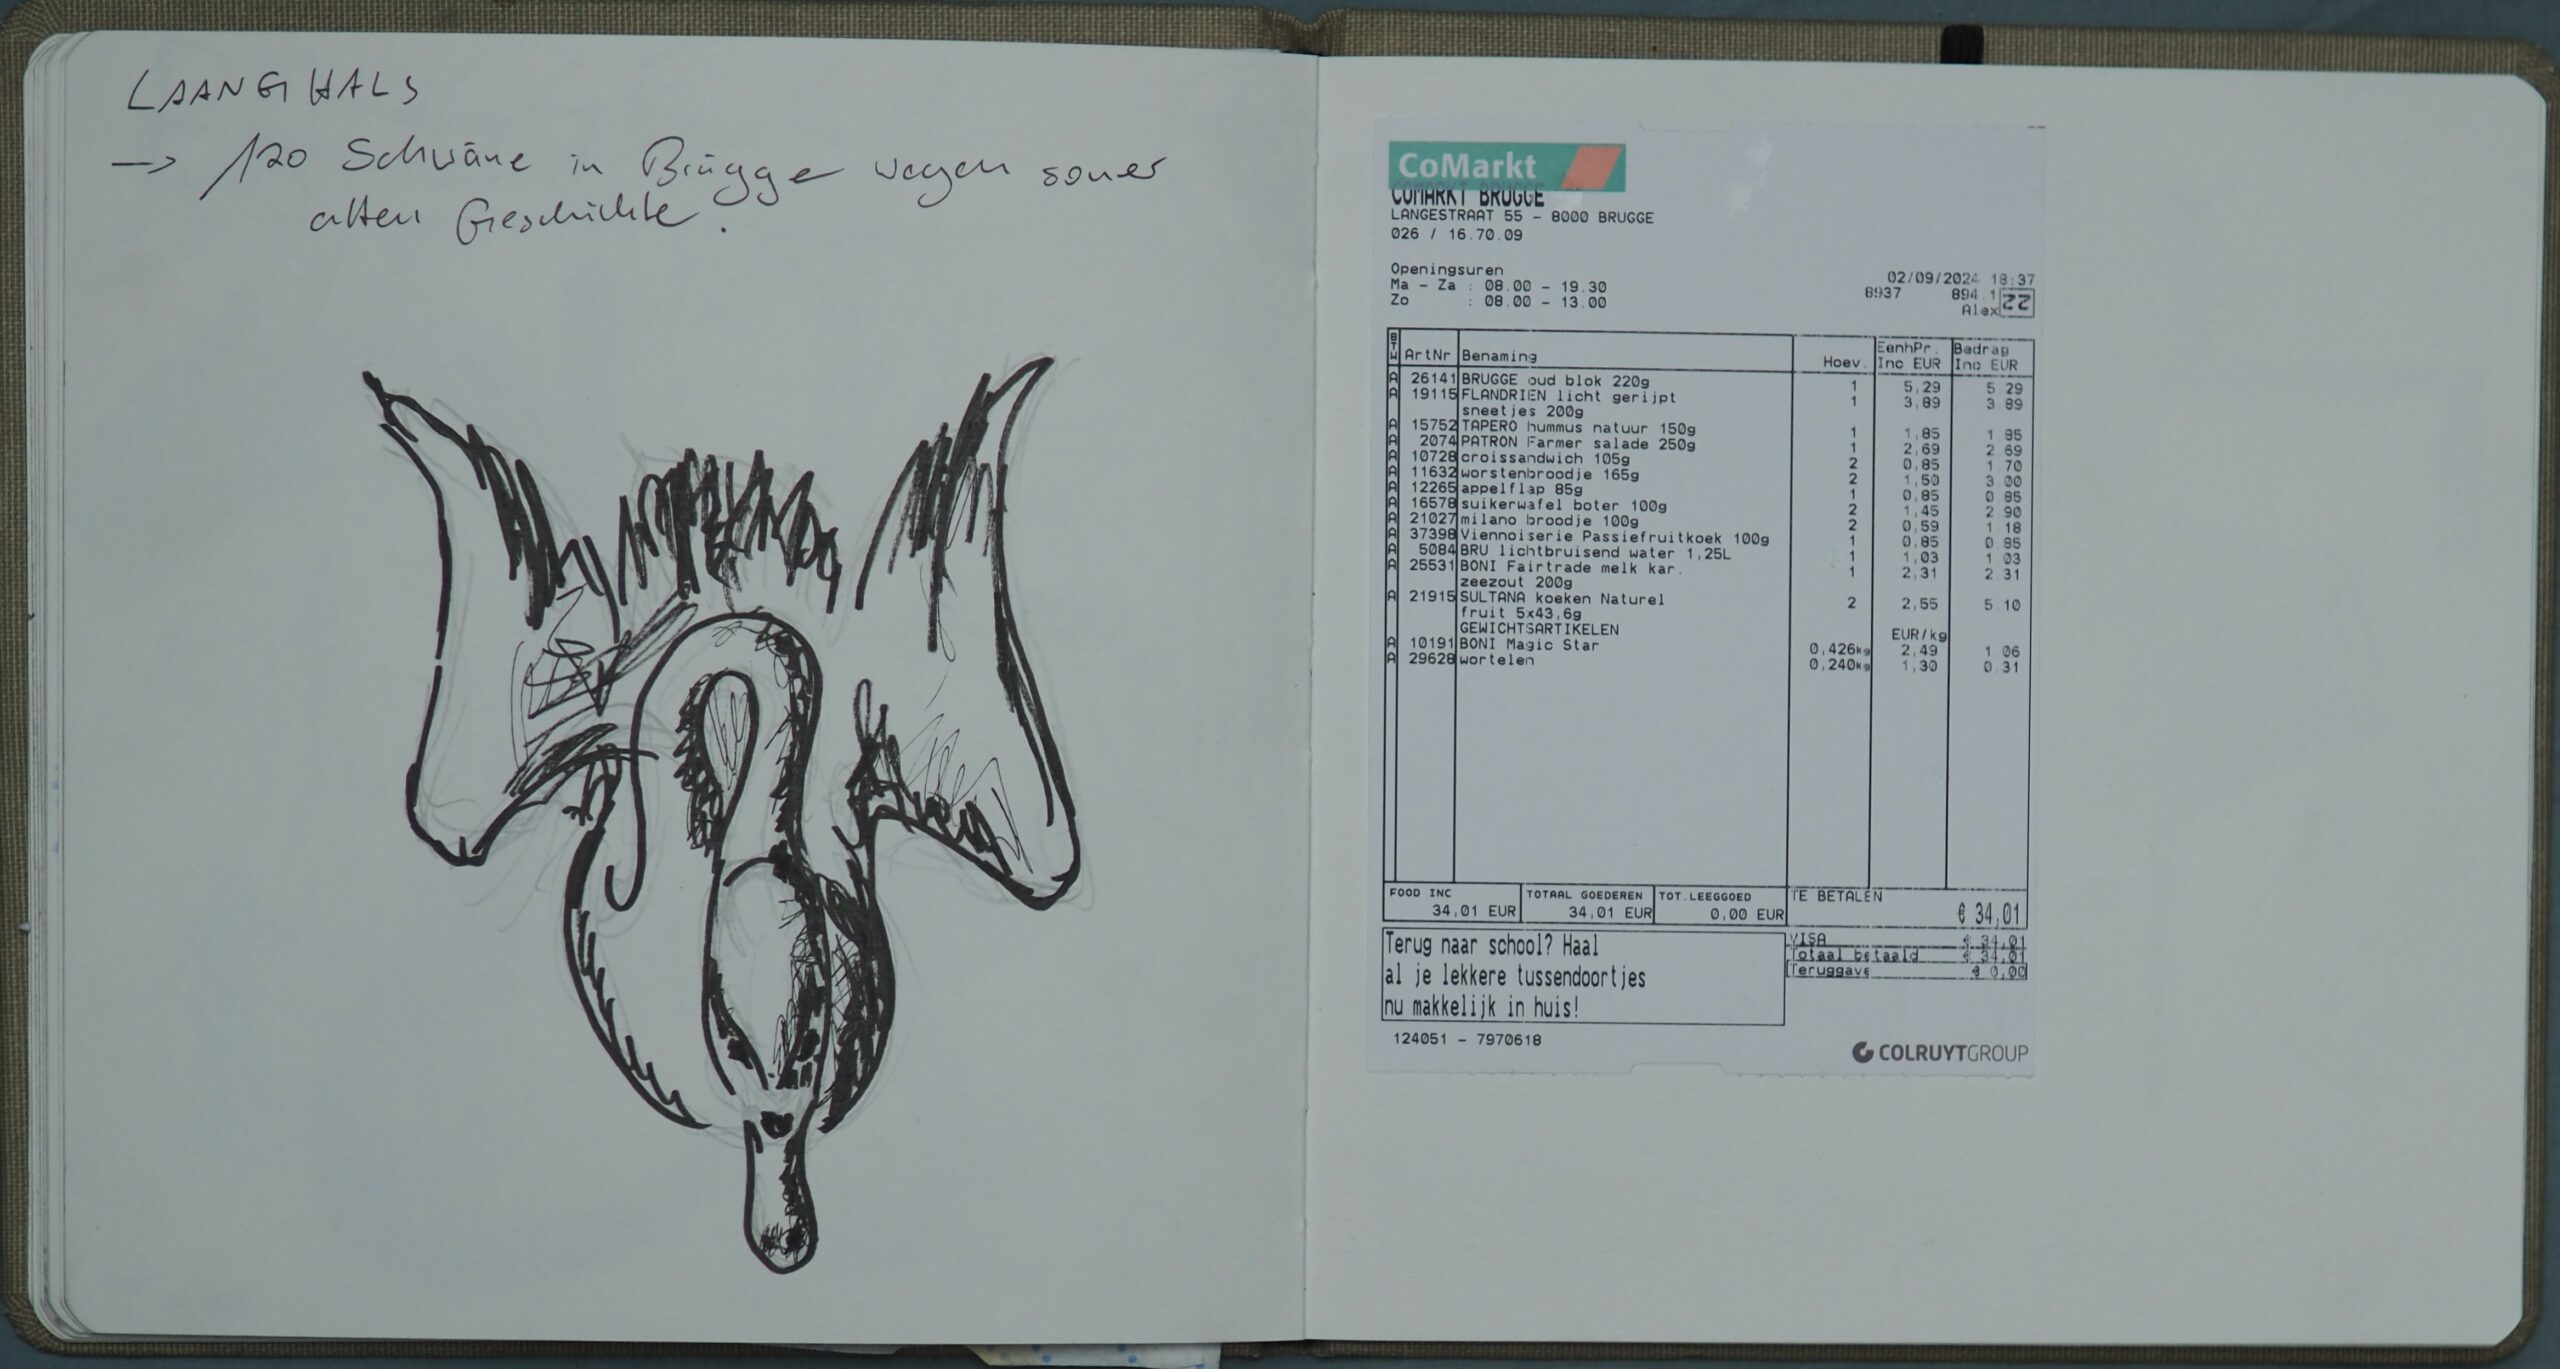 LAANGHALS
→ 120 Schwäne in Brügge wegen soner
alten Geschichte.
CoMarkt
COMARKT BRUGGE
LANGESTRAAT 55 - 8000 BRUGGE
026 / 16.70.09
Openingsuren
Ma - Za : 08.00 - 19.30
Zo : 08.00 - 13.00
02/09/2024 18:37
8937 894.1
Alex 22
BTW ArtNr Benaming Hoev. EenhPr. Inc EUR Bedrag Inc EUR
A 26141 BRUGGE oud blok 220g 1 5,29 5 29
A 19115 FLANDRIEN licht gerijpt 1 3,89 3 89
sneetjes 200g
A 15752 TAPERO hummus natuur 150g 1 1,85 1 85
A 2074 PATRON Farmer salade 250g 1 2,69 2 69
A 10728 croissandwich 105g 2 0,85 1 70
A 11632 worstenbroodje 165g 2 1,50 3 00
A 12265 appelflap 85g 1 0,85 0 85
A 16578 suikerwafel boter 100g 2 1,45 2 90
A 21027 milano broodje 100g 2 0,59 1 18
A 37398 Viennoiserie Passiefruitkoek 100g 1 0,85 0 85
A 5084 BRU lichtbruisend water 1,25L 1 1,03 1 03
A 25531 BONI Fairtrade melk kar. 1 2,31 2 31
zeezout 200g
A 21915 SULTANA koeken Naturel 2 2,55 5 10
fruit 5x43,6g
GEWICHTSARTIKELEN EUR/kg
A 10191 BONI Magic Star 0,426kg 2,49 1 06
A 29628 wortelen 0,240kg 1,30 0 31
FOOD INC TOTAAL GOEDEREN TOT.LEEGGOED TE BETALEN
34,01 EUR 34,01 EUR 0,00 EUR € 34,01
VISA € 34,01
Totaal betaald € 34,01
Teruggave € 0,00
Terug naar school? Haal
al je lekkere tussendoortjes
nu makkelijk in huis!
124051 - 7970618
COLRUYTGROUP